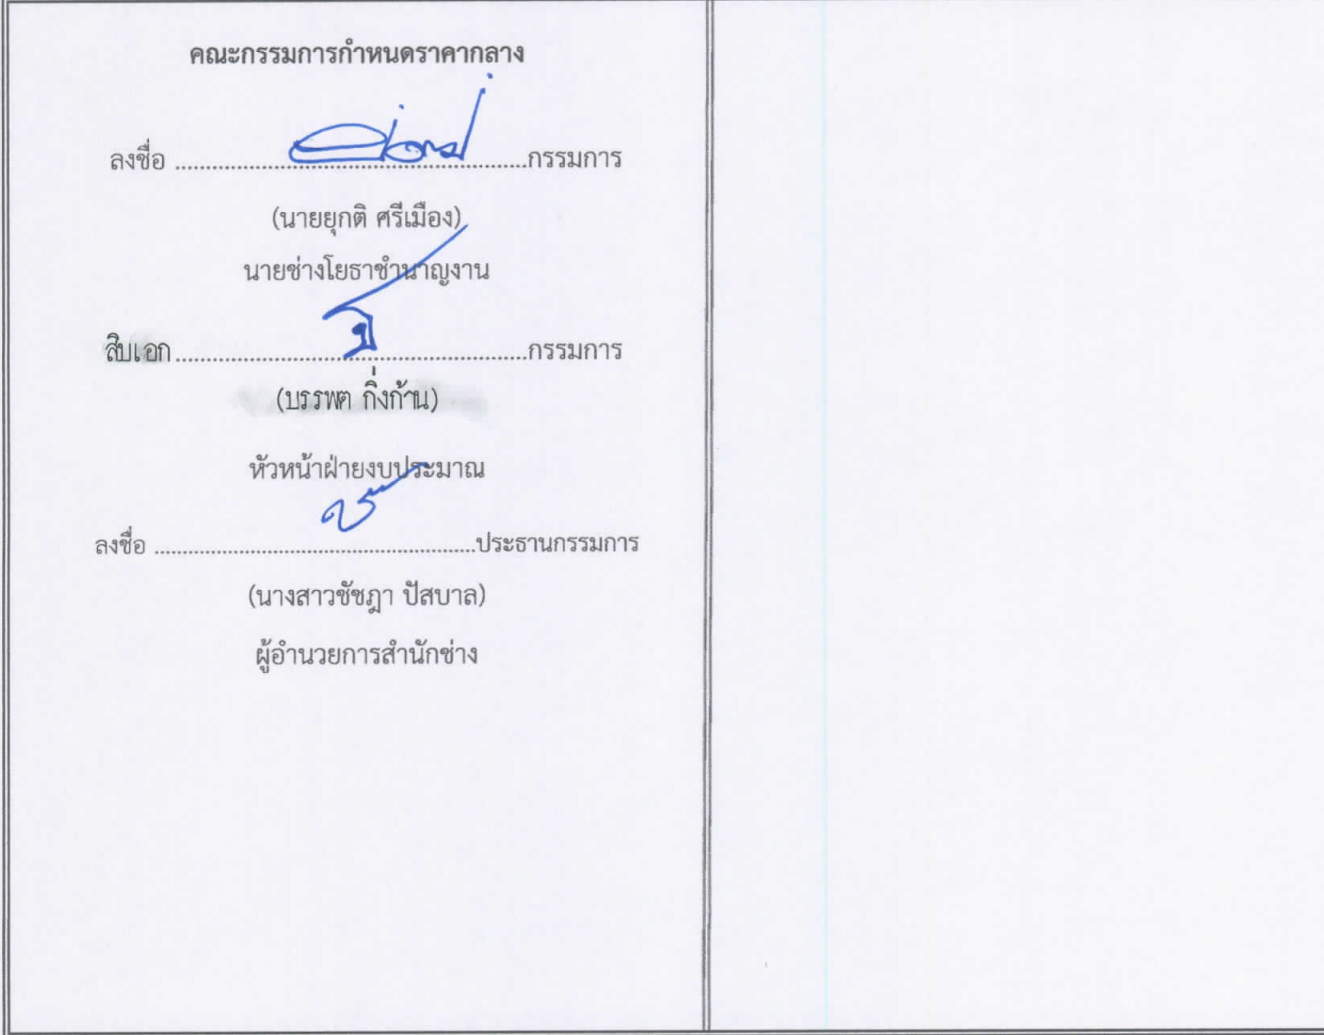 คณะกรรมการกำหนดราคากลาง
ลงชื่อ ........................................................กรรมการ
(นายยุกติ ศรีเมือง)
นายช่างโยธาชำนาญงาน
สิบเอก ........................................................กรรมการ
(บรรพต กิ่งก้าน)
หัวหน้าฝ่ายงบประมาณ
ลงชื่อ ........................................................ประธานกรรมการ
(นางสาวชัชฎา ปัสบาล)
ผู้อำนวยการสำนักช่าง